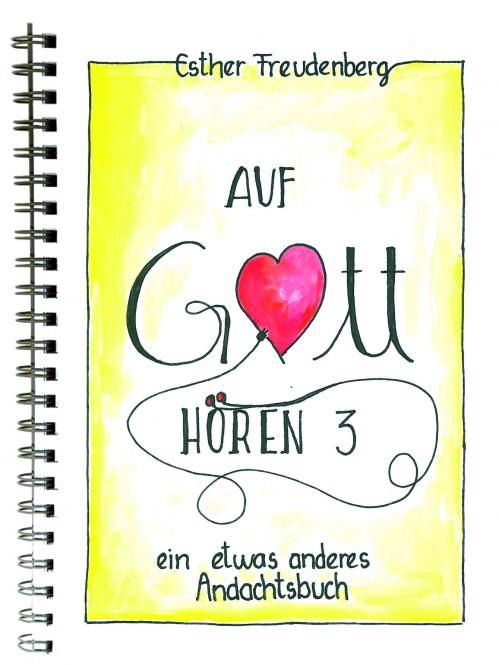 Esther Freudenberg
AUF
GOTT
HÖREN 3
ein etwas anderes
Andachtsbuch